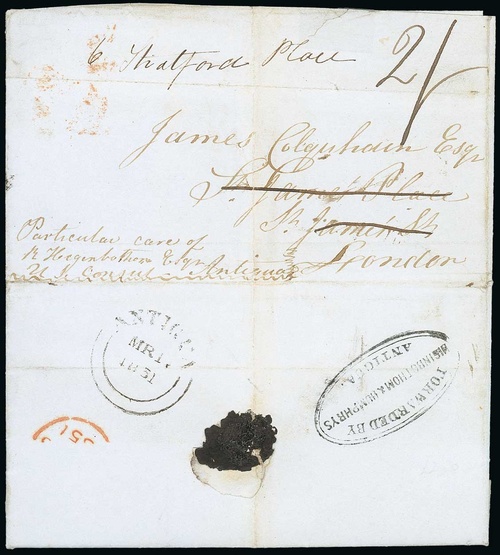 6 Stratford Place
2/
James Colquhoun Esqr
St. James' Place
St. James' St
London
Particular care of
R Hegenbotham Esqr
U S Consul Antigua
ANTIGUA
MR 1
1851
FORWARDED BY
HIGINBOTHOM & HUMPHRYS
ANTIGUA